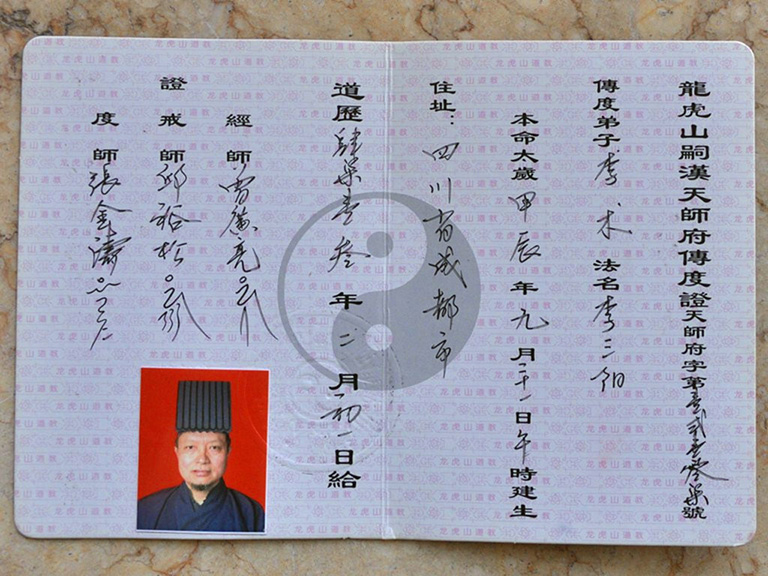 龍虎山嗣漢天師府傳度證天師府字第壹貳壹零柒號
傳度弟子李木 法名李三
本命太歲甲辰年九月二十一日午時建生
住址：四川省成都市
道歷肆柒壹叁年二月初一日給
經師曾廣亮
證戒師邱裕松
度師張金濤
龙虎山道教